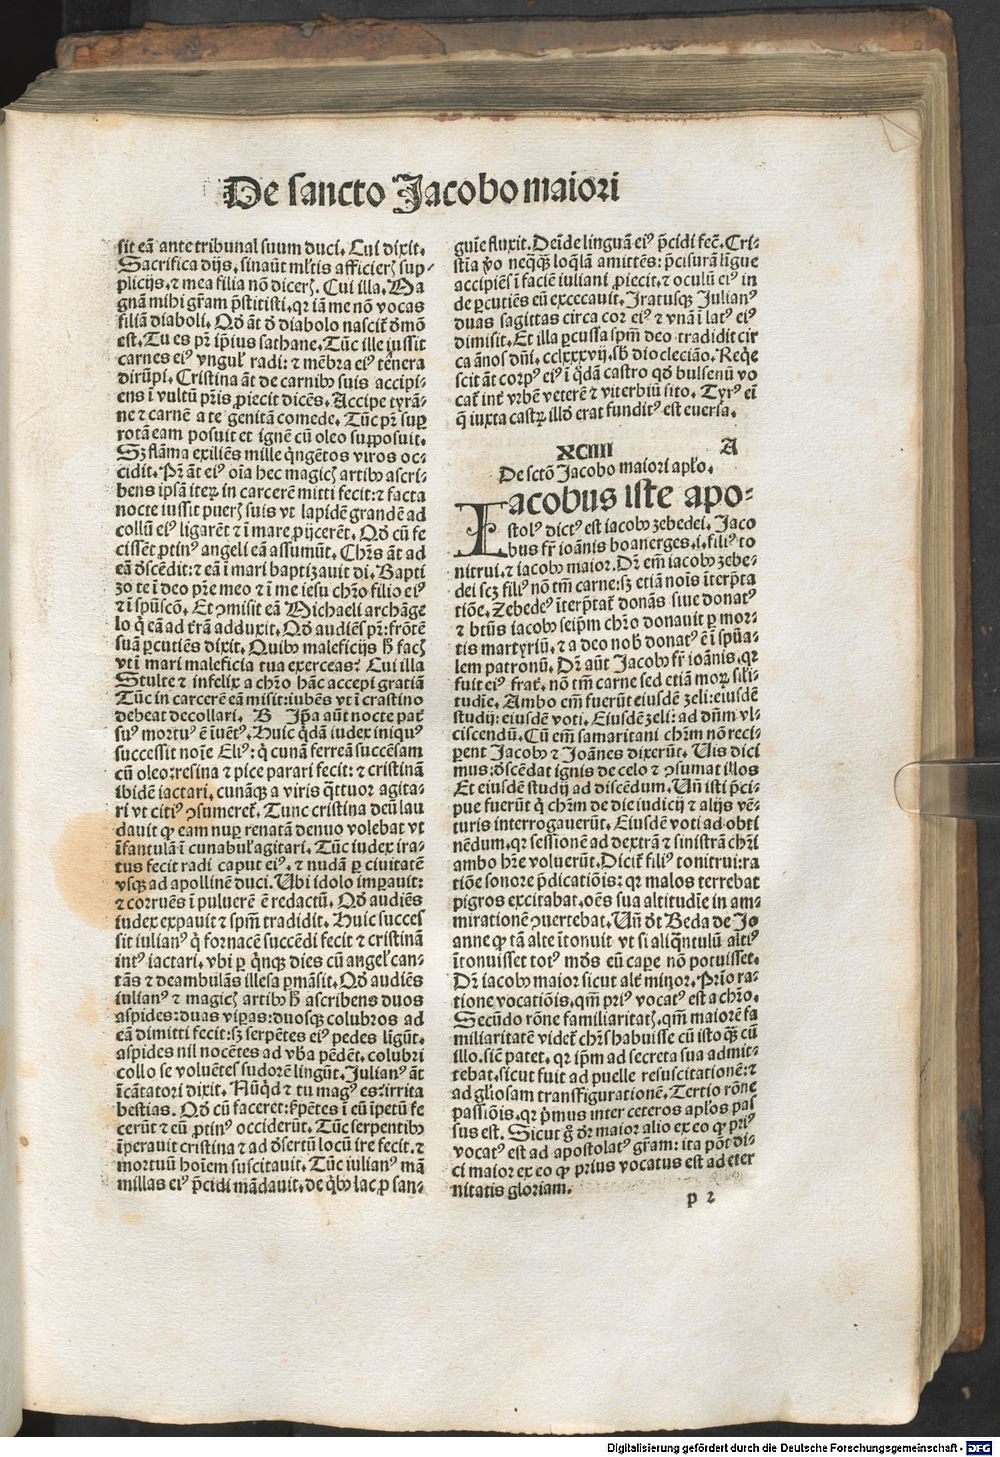 De sancto Jacobo maiori
sit eā ante tribunal suum duci. Cui dixit.
Sacrifica dijs, sinaūt ml'tis afficierꝭ sup-
plicijs, ⁊ mea filia nō dicerꝭ. Cui illa. Ma
gnam mihi grām p̄stitisti, qꝛ iā me nō vocas
filiā diaboli. Qd' āt d' diabolo nascit̄ d'mō
est. Tu es pr̄ ip̄ius sathane. Tūc ille iussit
carnes eiꝰ vngul' radi: ⁊ mēbra eiꝰ tēnera
dirūpi. Cristina āt de carnibꝰ suis accipi-
ens ī vultū pr̄is ꝓiecit dicēs. Accipe tyrā-
ne ⁊ carnē a te genitā comede. Tūc pr̄ suꝑ
rotā eam posuit et ignē cū oleo supposuit.
Sꝫ flāma exiliēs mille q̄ngētos viros oc-
cidit. Pr̄ āt eiꝰ oīa hec magicꝭ artibꝰ ascri-
bens ipsā iteꝝ in carcerē mitti fecit: ⁊ facta
nocte iussit puerꝭ suis vt lapidē grandē ad
collū eiꝰ ligarēt ⁊ ī mare ꝓijcerēt. Qd' cū fe
cissēt ꝓtinꝰ angeli eā assumūt. Chr̄s āt ad
eā d'scēdit: ⁊ eā ī mari baptizauit dī. Bapti
zo te ī deo pr̄e meo ⁊ ī me iesu chr̄o filio eiꝰ
⁊ ī sp̄uscō. Et ꝯmisit eā Michaeli archāge
lo q̇ eā ad t̄rā adduxit. Qd' audiēs pr̄: frōtē
suā ꝑcutiēs dixit. Quibꝰ maleficijs h̄ facꝭ
vt ī mari maleficia tua exerceas? Cui illa
Stulte ⁊ infelix a chr̄o hāc accepi gratiā
Tūc in carcerē eā misit: iubēs vt ī crastino
debeat decollari. B Ip̄a aūt nocte pat̄
suꝰ mortuꝰ ē īuētꝰ. Huic q̄dā iudex iniquꝰ
successit noīe Eliꝰ: q̇ cunā ferreā succēsam
cū oleo: resina ⁊ pice parari fecit: ⁊ cristinā
ibidē iactari, cunāqꝫ a viris q̄ttuor agita-
ri vt citiꝰ ꝯsumeret̄. Tunc cristina deū lau
dauit ꝙ eam nuꝑ renatā denuo volebat vt
īfantulā ī cunabul' agitari. Tūc iudex ira-
tus fecit radi caput eiꝰ, ⁊ nudā ꝑ ciuitatē
vsqꝫ ad apollinē duci. Ubi idolo imꝑauit:
⁊ corruēs ī puluerē ē redactū. Qd' audiēs
iudex expauit ⁊ sp̄m tradidit. Huic succes
sit iulianꝰ q̇ fornacē succēdi fecit ⁊ cristinā
intꝰ iactari, vbi ꝑ q̄nqꝫ dies cū angel' can-
tās ⁊ deambulās illesa ꝑmāsit. Qd' audiēs
iulianꝰ ⁊ magicꝭ artibꝰ h̄ ascribens duos
aspides: duas viꝑas: duosqꝫ colubros ad
eā dimitti fecit: sꝫ serpētes eiꝰ pedes līgūt.
aspides nil nocētes ad vb̄a pēdēt. colubri
collo se voluētes sudorē lingūt. Julianꝰ āt
īcātatori dixit. Nūqd ⁊ tu magꝰ es: irrita
bestias. Qd' cū faceret: s̄pētes ī eū īpetū fe
cerūt ⁊ eū ꝓtinꝰ occiderūt. Tūc serpentibꝰ
īperauit cristina ⁊ ad d'sertū locū ire fecit. ⁊
mortuū hoīem suscitauit. Tūc iulianꝰ mā
millas eiꝰ p̄cidi mādauit. de q̇bꝰ lac ꝓ san-
guīe fluxit. Deīde linguā eiꝰ p̄cidi fec̄. Cri-
stīa v̄o neqꝗꝫ loq̄lā amittēs: p̄cisurā līgue
accipiēs ī faciē iuliani ꝓiecit. ⁊ oculū eiꝰ in
de ꝑcutiēs eū excecauit. Iratusqꝫ Julianꝰ
duas sagittas circa cor eiꝰ ⁊ vnā ī latꝰ eiꝰ
dimisit. Et illa ꝑcussa sp̄m deo tradidit cir
ca ānos dn̄i. cclxxxvij. sb̄ diocleciāo. Reqe̅
scit āt corpꝰ eiꝰ ī q̄dā castro qd' bulsenū vo
cat̄ int̄ vrbē veterē ⁊ viterbiū sito. Tyrꝰ eī
q̄ iuxta castꝝ illd' erat funditꝰ est euersa.
XCIIII A
De sctō Jacobo maiori apl'o.
Iacobus iste apo-
stolꝰ dictꝰ est iacobꝰ zebedei. Jaco
bus fr̄ ioānis boanerges. i. filiꝰ to
nitrui. ⁊ iacobꝰ maior. Dr̄ em̄ iacobꝰ zebe-
dei scꝫ filiꝰ nō tm̄ carne: sꝫ etiā noīs īterp̄ta
tiōe. Zebedeꝰ īterp̄tat̄ donās siue donatꝰ
⁊ btūs iacobꝰ seip̄m chr̄o donauit ꝑ mor-
tis martyriū. ⁊ a deo nob' donatꝰ ē ī sp̄ua-
lem patronū. Dr̄ aūt Jacobꝰ fr̄ ioānis. qꝛ
fuit eiꝰ frat̄, nō tm̄ carne sed etiā moꝝ sil'i-
tudīe. Ambo em̄ fuerūt eiusdē zeli: eiusdē
studij: eiusdē voti. Eiusdē zeli: ad dn̄m vl-
ciscendū. Cū em̄ samaritani chr̄m nō reci-
perent Jacobꝰ ⁊ Joānes dixerūt. Uis dici
mus: d'scēdat ignis de celo ⁊ ꝯsumat illos
Et eiusdē studij ad discēdum. Un̄ isti p̄ci-
pue fuerūt q̇ chr̄m de die iudicij ⁊ alijs vē-
turis interrogauerūt. Eiusdē voti ad obti
nēdum, qꝛ sessionē ad dextrā ⁊ sinistrā chr̄i
ambo hr̄e voluerūt. Dicit̄ filiꝰ tonitrui: ra
tiōe sonore p̄dicatiōis: qꝛ malos terrebat
pigros excitabat, oēs sua altitudīe in am-
mirationē ꝯuertebat. Un̄ d't Beda de Jo
anne ꝙ tā alte ītonuit vt si aliq̄ntulū altiꝰ
ītonuisset totꝰ mūdꝰ eū caꝑe nō potuisset.
Dr̄ iacobꝰ maior sicut alt̄ minor. Prīo ra-
tione vocatiōis, qm̄ priꝰ vocatꝰ est a chr̄o.
Secūdo rōne familiaritatꝭ, qm̄ maiorē fa
miliaritatē videt̄ chr̄s habuisse cū isto qꝫ cū
illo. sic̄ patet, qꝛ ip̄m ad secreta sua admit-
tebat. sicut fuit ad puelle resuscitationē: ⁊
ad gl'iosam transfigurationē. Tertio rōne
passiōis, qꝛ p̄mus inter ceteros apl'os pas
sus est. Sicut g̊ dr̄ maior alio ex eo ꝙ priꝰ
vocatꝰ est ad apostolatꝰ grām: ita pōt di-
ci maior ex eo ꝙ prius vocatus est ad eter
nitatis gloriam.
p 2
Digitalisierung gefördert durch die Deutsche Forschungsgemeinschaft - DFG